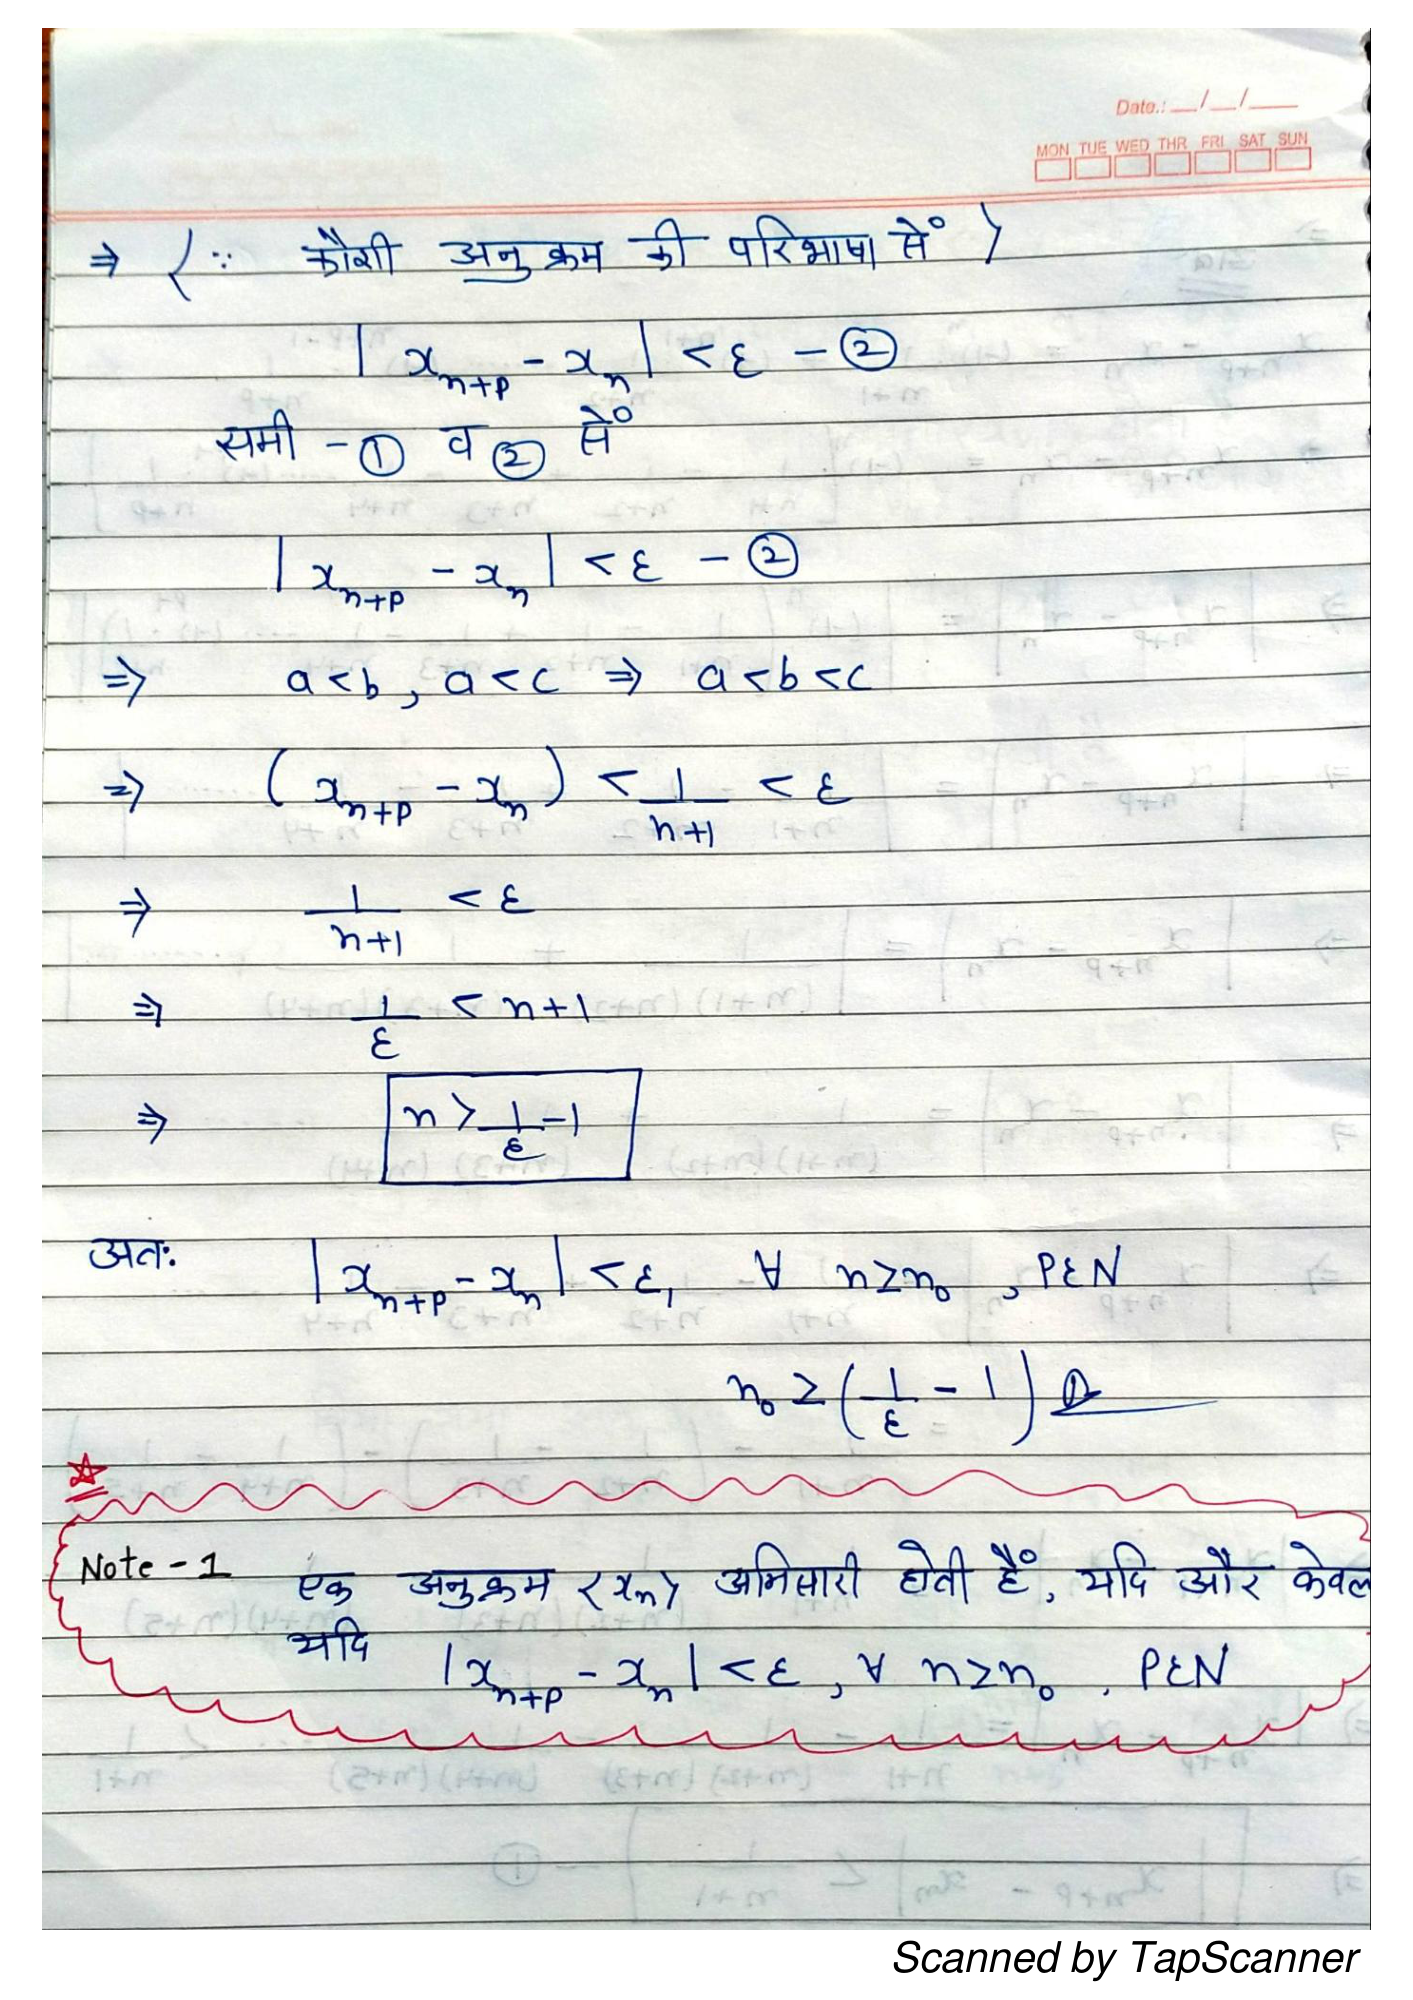 Date.: __/__/___
MON TUE WED THR FRI SAT SUN
⇒ (∵ कौशी अनुक्रम की परिभाषा सें)
|x_{n+p} - x_n| < ε - ②
समी - ① व ② सें
|x_{n+p} - x_n| < ε - ②
⇒ a < b, a < c ⇒ a < b < c
⇒ (x_{n+p} - x_n) < 1/(n+1) < ε
⇒ 1/(n+1) < ε
⇒ 1/ε < n+1
⇒ n > 1/ε - 1
अतः |x_{n+p} - x_n| < ε, ∀ n ≥ n₀, P ∈ N
n₀ ≥ (1/ε - 1)
Note - 1 एक अनुक्रम <x_n> अभिसारी होती हैं, यदि और केवल
यदि |x_{n+p} - x_n| < ε, ∀ n ≥ n₀, P ∈ N
Scanned by TapScanner